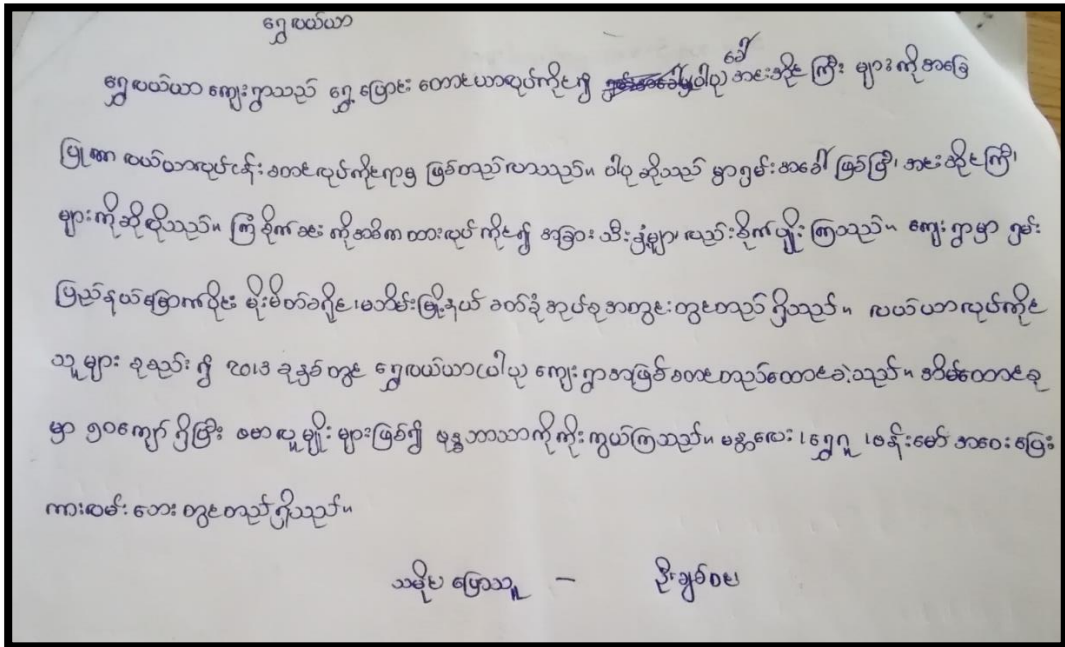 ရွှေလယ်ယာ
ရွှေလယ်ယာ ကျေးရွာသည် ရွှေ့ပြောင်း တောင်ယာလုပ်ကိုင်၍ ဝါပု ခေါ် အင်းအိုင် ကြီး များကိုအခြေ
ပြုကာ လယ်ယာလုပ်ငန်း စတင်လုပ်ကိုင်ရာမှ ဖြစ်တည်လာသည်။ ဝါပု ဆိုသည် မှာရှမ်းအခေါ် ဖြစ်ပြီး အင်းအိုင်ကြီး
များကိုဆိုလိုသည်။ ကြံစိုက်ခင်း ကိုအဓိကထားလုပ် ကိုင်၍ အခြား သီးနှံများ လည်းစိုက်ပျိုး ကြသည်။ ကျေးရွာမှာ ရှမ်း
ပြည်နယ်မြောက်ပိုင်း မိုးမိတ်ခရိုင် ၊မဘိမ်းမြို့နယ် ခတ်ခုံအုပ်စုအတွင်းတွင်တည် ရှိသည်။ လယ်ယာလုပ်ကိုင်
သူများ စုစည်း၍ ၂၀၁၃ ခုနှစ်တွင် ရွှေလယ်ယာ(ဝါပု) ကျေးရွာအဖြစ်စတင်တည်ထောင်ခဲ့သည်။ အိမ်ထောင်စု
မှာ ၅၀ကျော် ရှိပြီး ဗမာလူမျိုး များဖြစ်၍ ဗုဒ္ဓဘာသာကိုကိုးကွယ်ကြသည်။ မန္တလေး ၊ရွှေကူ ၊ဗန်းမော် အဝေးပြေး
ကားလမ်းဘေးတွင်တည်ရှိသည်။
သမိုင်း ပြောသူ – ဦးချစ်ဝင်း